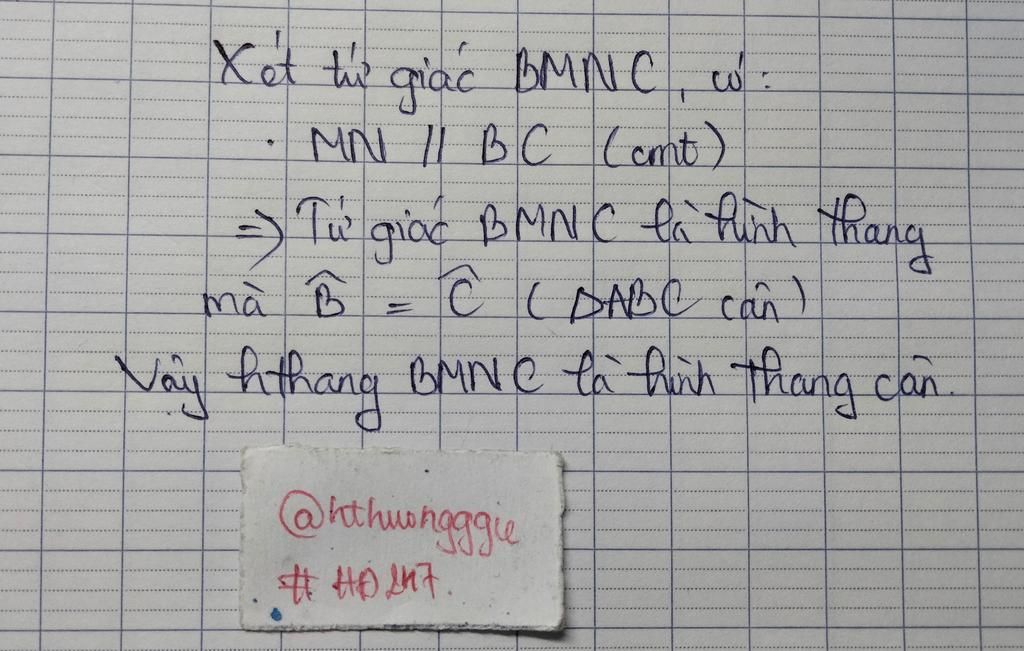 Xét tứ giác BMNC, có:
· MN // BC (cmt)
=> Tứ giác BMNC là hình thang
mà B̂ = Ĉ (ΔABC cân)
Vậy hthang BMNC là hình thang cân.
@hthuongggie
# HĐ247.